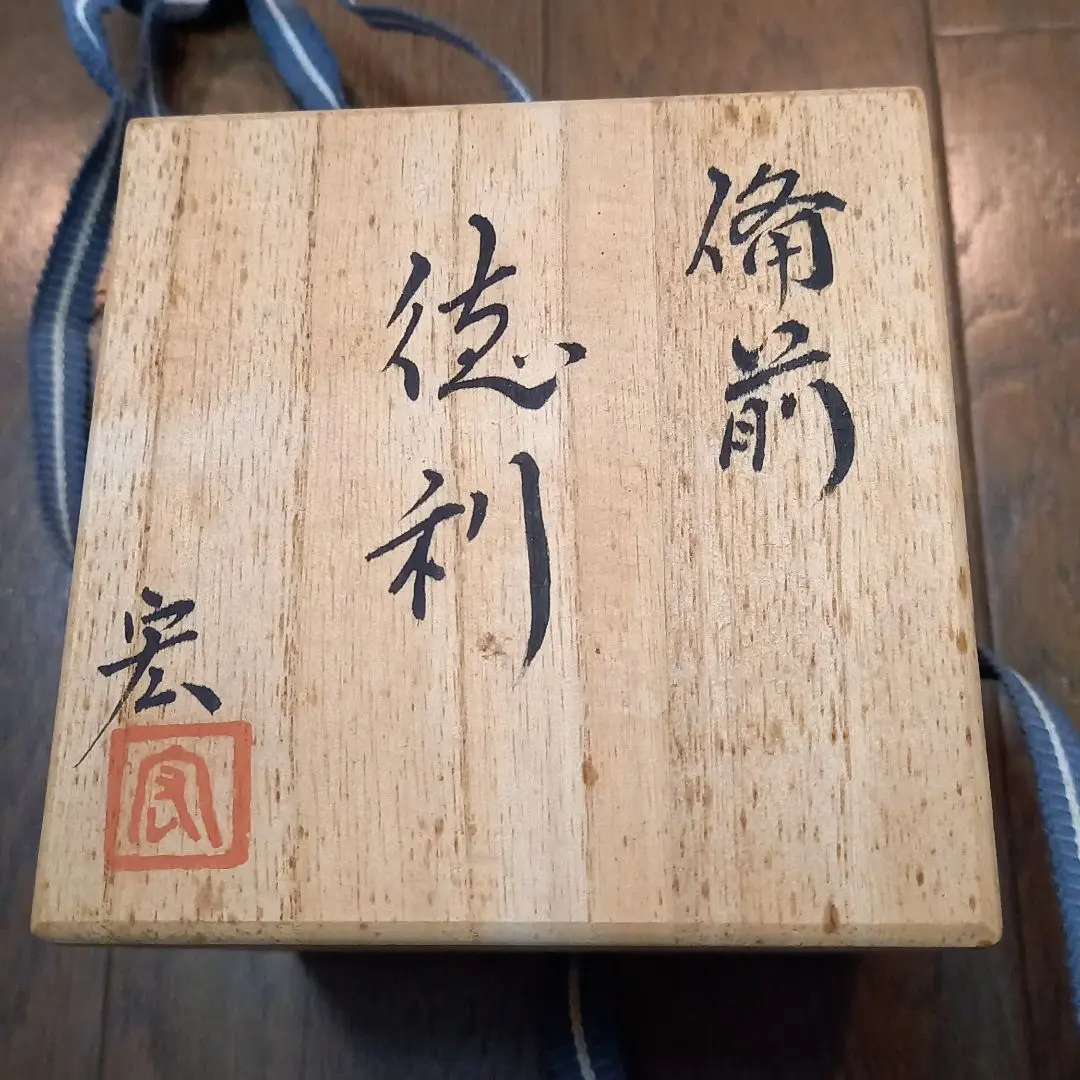 備前
徳利
宏
宏